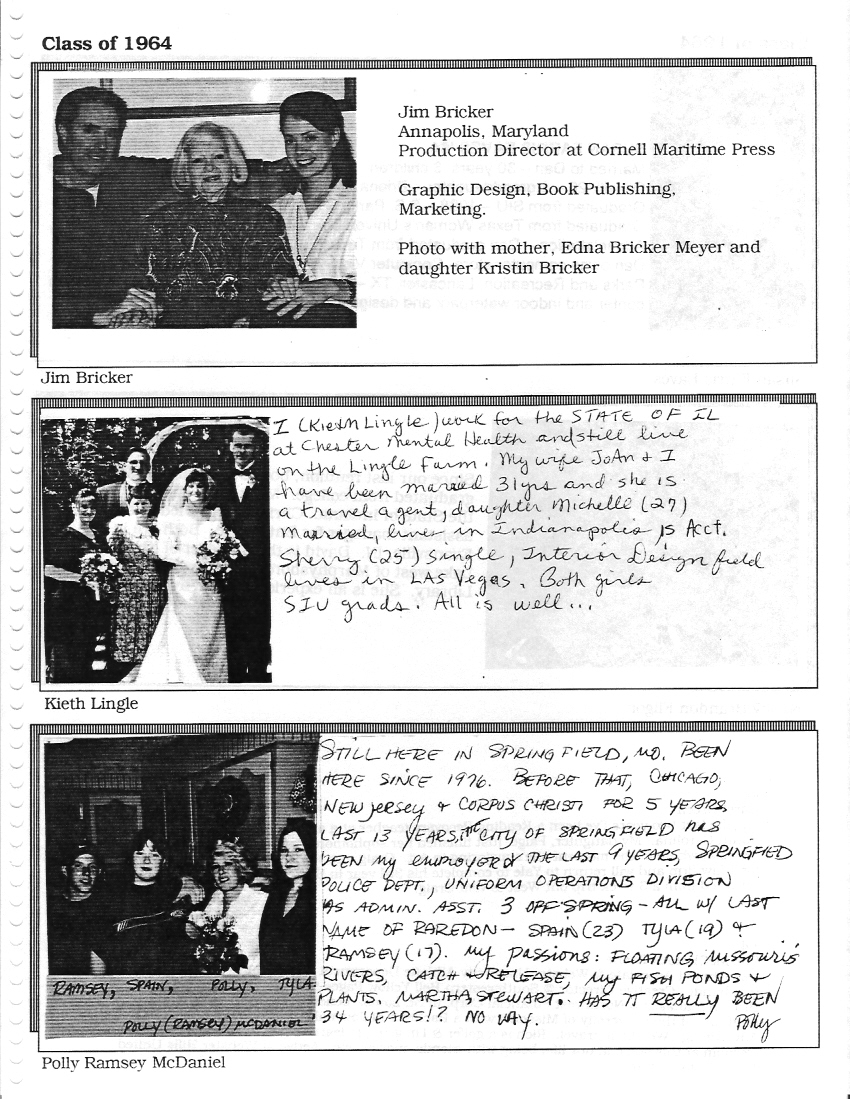 Class of 1964
Jim Bricker
Annapolis, Maryland
Production Director at Cornell Maritime Press
Graphic Design, Book Publishing,
Marketing.
Photo with mother, Edna Bricker Meyer and
daughter Kristin Bricker
Jim Bricker
I (Kieth Lingle) work for the STATE OF IL
at Chester Mental Health and still live
on the Lingle Farm. My wife JoAn & I
have been married 31 yrs and she is
a travel agent, daughter Michelle (27)
Married, lives in Indianapolis is Acct.
Sherry (25) Single, Interior Design field
lives in LAS Vegas. Both girls
SIU grads. All is well...
Kieth Lingle
STILL HERE IN SPRINGFIELD, MO. BEEN
HERE SINCE 1976. BEFORE THAT, CHICAGO,
NEW JERSEY & CORPUS CHRISTI FOR 5 YEARS.
LAST 13 YEARS, THE CITY OF SPRINGFIELD HAS
BEEN MY EMPLOYER & THE LAST 9 YEARS, SPRINGFIELD
POLICE DEPT., UNIFORM OPERATIONS DIVISION
AS ADMIN. ASST. 3 OFFSPRING - ALL W/ LAST
NAME OF RAREDON - SPAIN (23) TYLA (19) &
RAMSEY (17). MY PASSIONS: FLOATING MISSOURI'S
RIVERS, CATCH & RELEASE, MY FISH PONDS &
PLANTS, MARTHA STEWART. HAS IT REALLY BEEN
34 YEARS!? NO WAY.
Polly
RAMSEY, SPAIN, POLLY, TYLA
POLLY (RAMSEY) MCDANIEL
Polly Ramsey McDaniel